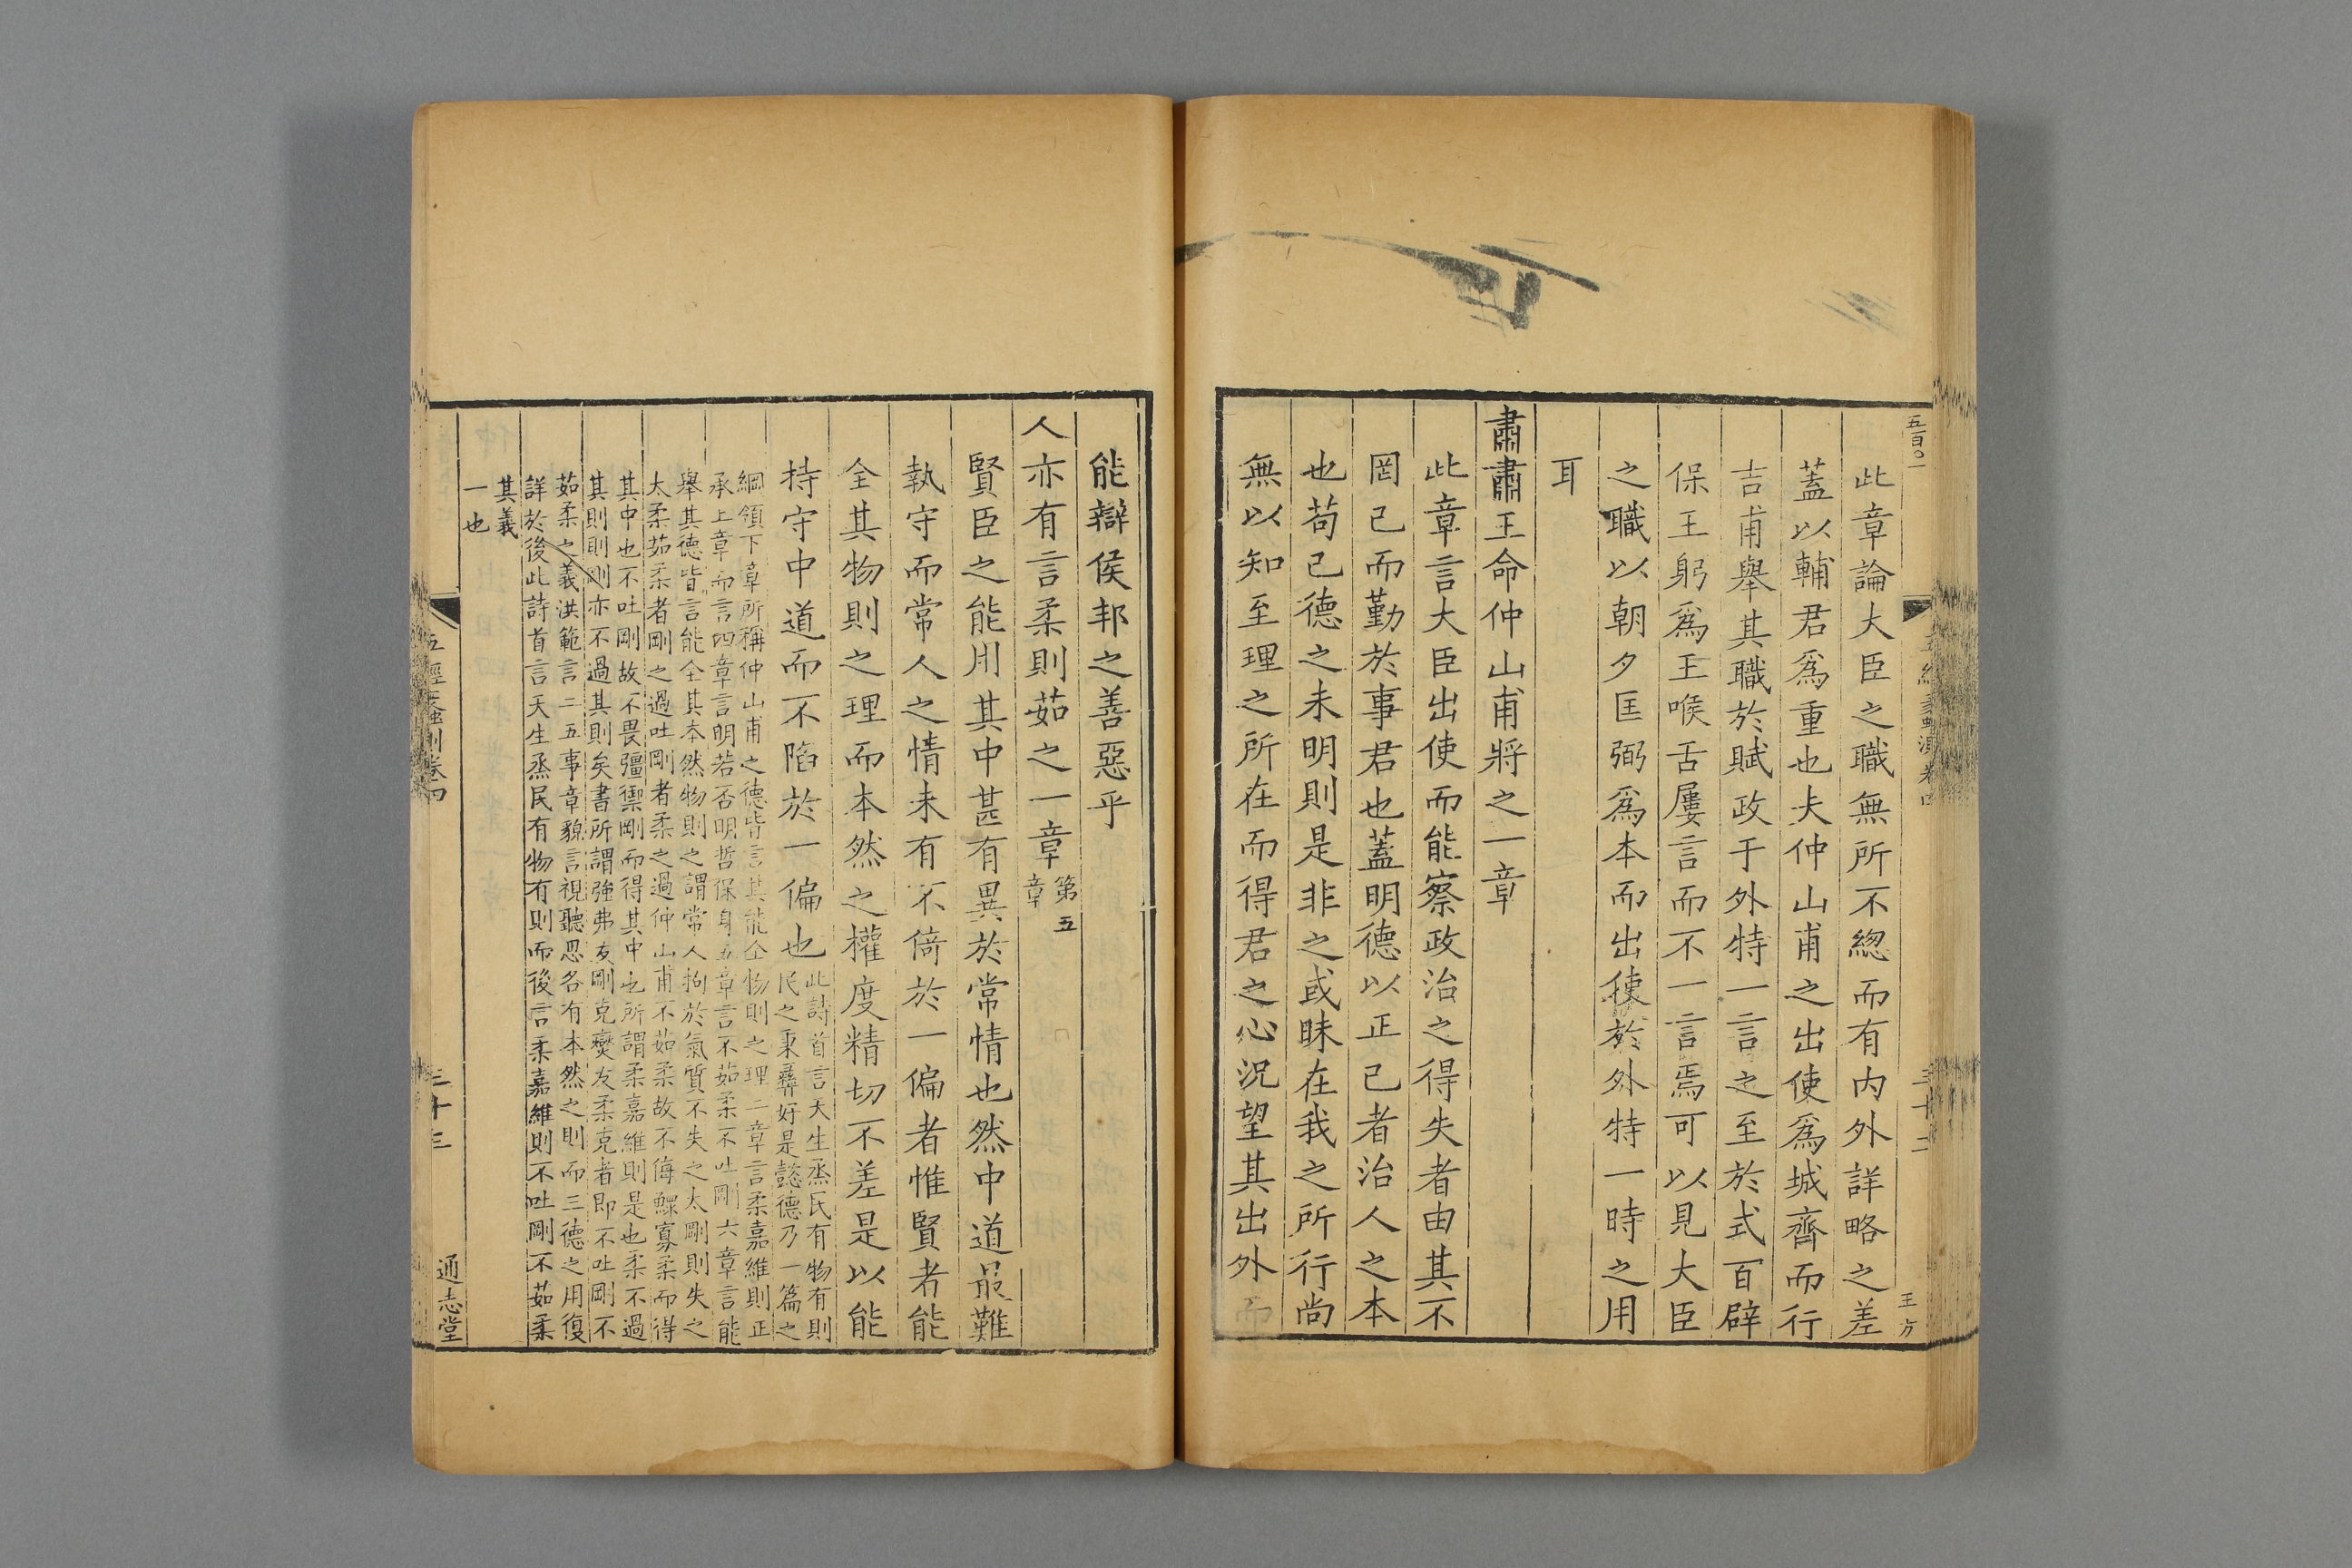 五百〇一
王方
此章論大臣之職無所不緫而有内外詳略之差
蓋以輔君爲重也夫仲山甫之出使爲城齊而行
吉甫舉其職於賦政于外特一言之至於式百辟
保王躬爲王喉舌屢言而不一言焉可以見大臣
之職以朝夕匡弼爲本而出使於外特一時之用
耳
肅肅王命仲山甫將之一章
此章言大臣出使而能察政治之得失者由其不
罔己而勤於事君也蓋明德以正己者治人之本
也苟己德之未明則是非之或昧在我之所行尚
無以知至理之所在而得君之心況望其出外而
能辯侯邦之善惡乎
人亦有言柔則茹之一章第五章
賢臣之能用其中甚有異於常情也然中道最難
執守而常人之情未有不倚於一偏者惟賢者能
全其物則之理而本然之權度精切不差是以能
持守中道而不陷於一偏也
此詩首言天生烝民有物有則
民之秉彝好是懿德乃一篇之
綱領下章所稱仲山甫之德皆言其能全物則之理二章言柔嘉維則正
承上章而言四章言明若否明哲保身五章言不茹柔不吐剛六章言能
舉其德皆言能全其本然物則之謂常人拘於氣質不失之太剛則失之
太柔茹柔者剛之過吐剛者柔之過仲山甫不茹柔故不侮鰥寡柔而得
其中也不吐剛故不畏彊禦剛而得其中也所謂柔嘉維則是也柔不過
其則則剛亦不過其則矣書所謂強弗友剛克燮友柔克者即不吐剛不
茹柔之義洪範言二五事章貌言視聽思各有本然之則而三德之用復
詳於後此詩首言天生烝民有物有則而後言柔嘉維則不吐剛不茹柔
其義
一也
五經蠡測卷四
三十三
通志堂